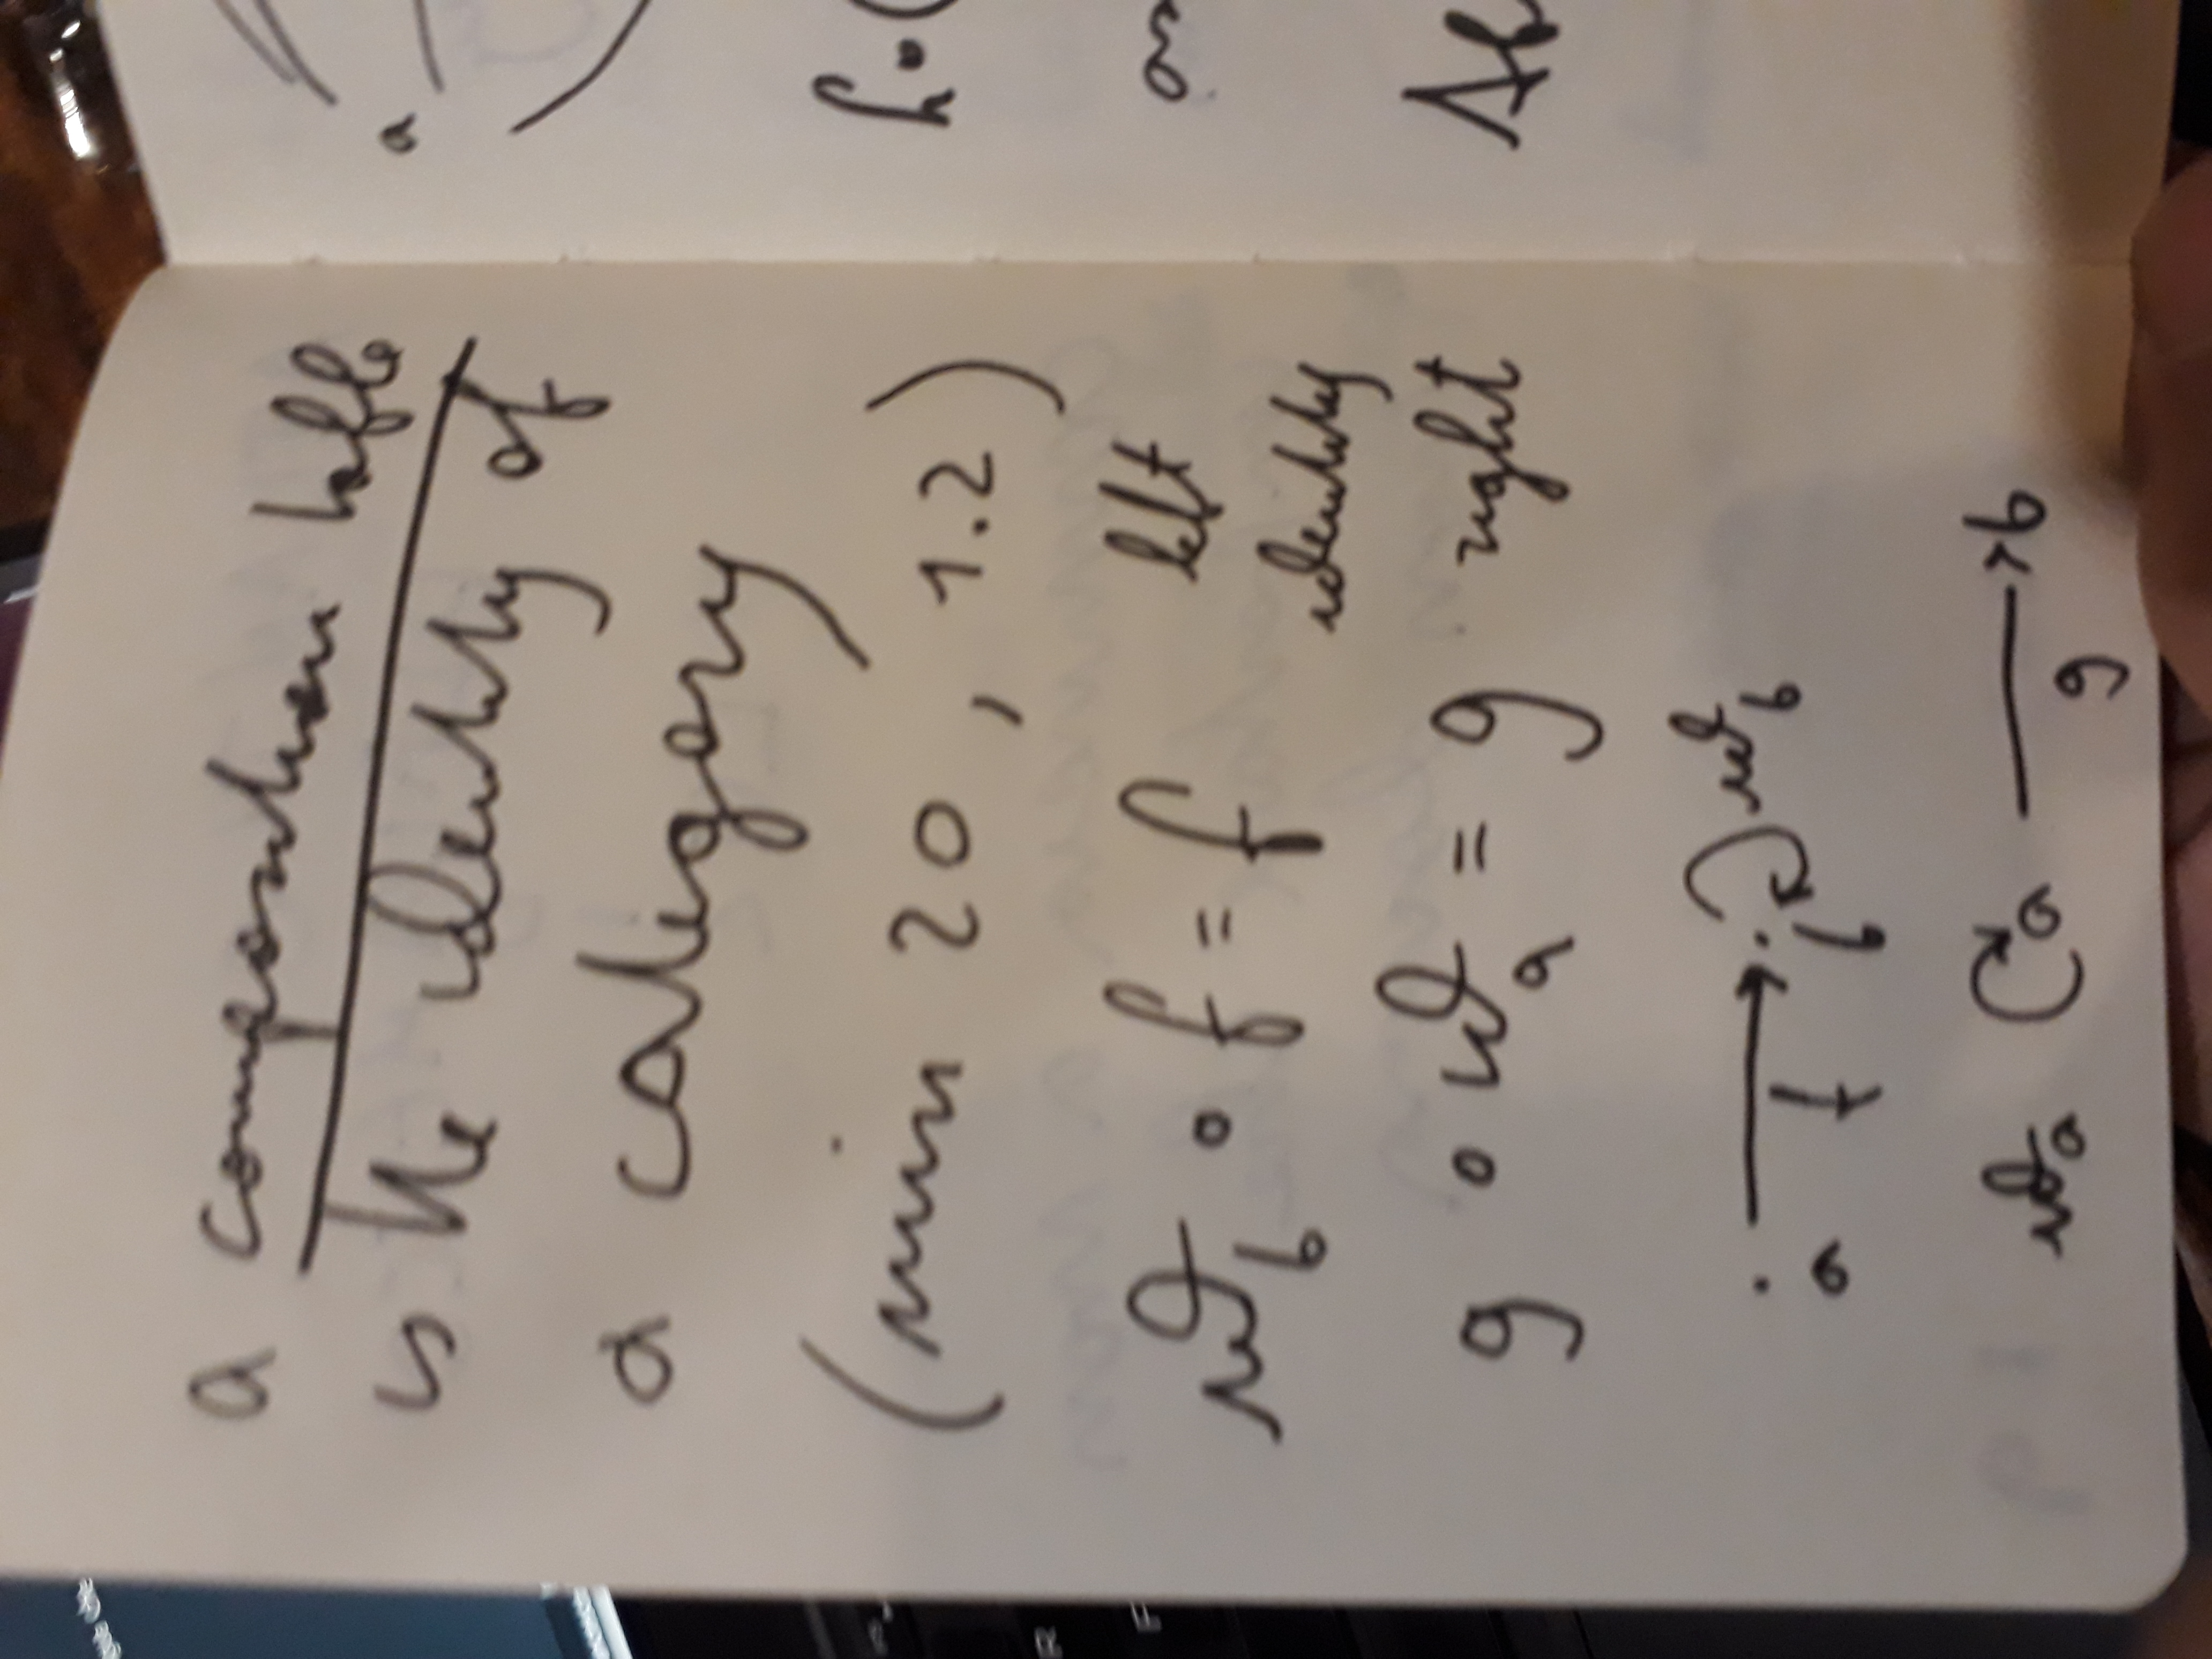 a composition table
is the identity of
a category
(min 20, 1.2)
id_b ∘ f = f left
identity
g ∘ id_a = g right
a f b id_b
id_a a g b
a
h∘(